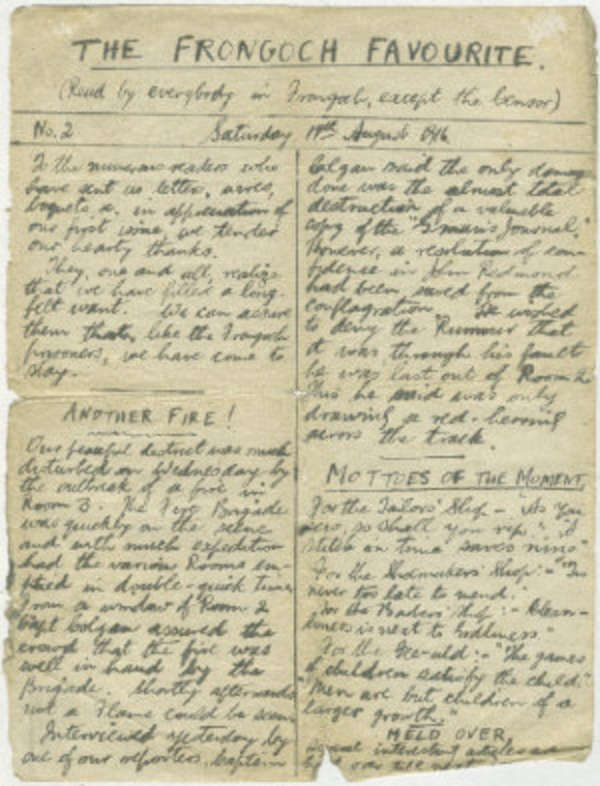 THE FRONGOCH FAVOURITE.
(Read by everybody in Frongoch, except the Censor)
No. 2 Saturday August 1916
To the numerous readers who
have sent us letters,
in appreciation of
our first issue, we tender
our hearty thanks.
They, one and all, realize
that we have filled a long-
felt want. We can assure
them that, like the Frongoch
prisoners, we have come to
stay.
ANOTHER FIRE!
Our peaceful district was much
disturbed on Wednesday by
the outbreak of a fire in
Room 3. The Fire Brigade
was quickly on the scene
and with much expedition
had the various Rooms em-
ptied in double-quick time.
From a window of Room 2
Capt Colgan assured the
crowd that the fire was
well in hand by the
Brigade. Shortly afterwards
not a Flame could be seen.
Interviewed yesterday by
one of our reporters, Captain
Colgan said the only damage
done was the almost total
destruction of a valuable
copy of the Journal."
However, a resolution of con-
fidence in John Redmond
had been saved from the
conflagration. He wished
to deny the Rumour that
it was through his fault
he was last out of Room 2
This he said was only
drawing a red-herring
across the track.
MOTTOES OF THE MOMENT.
For the Tailors' Shop - "As you
sew, so shall you rip." "A
stitch in time saves nine"
For the Shoemakers' Shop:- "Tis
never too late to mend."
For the Barbers' Shop:- Clean-
liness is next to Godliness."
For the :- "The games
of children satisfy the child."
"Men are but children of a
larger growth."
HELD OVER
several interesting articles are
held over till next